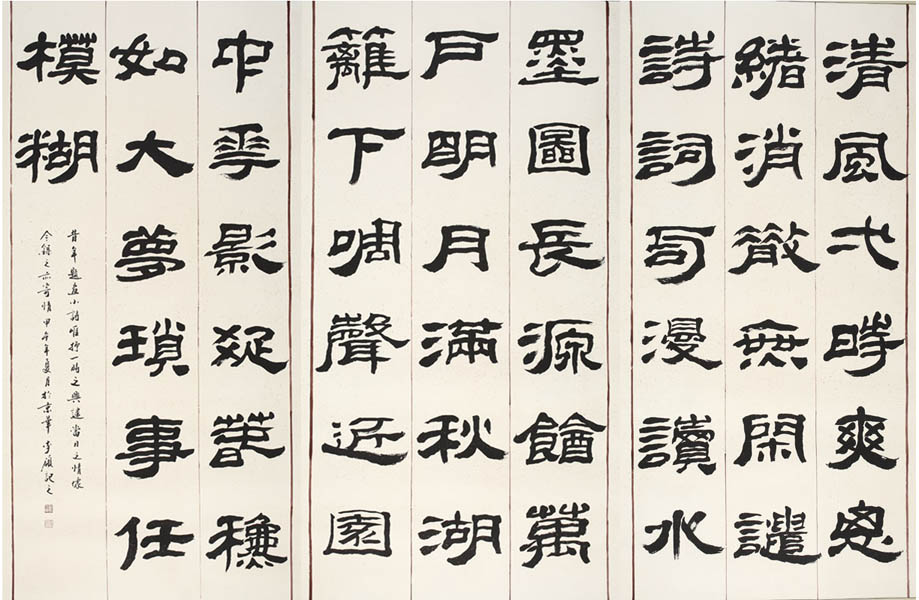 清風弌時爽思
緒消散無閑譴
詩詞句漫讀水
墨圖長源萬
戶明月滿秋湖
籬下啁聲近園
中華影舊穠
如大夢瑣事任
模糊
昔年題畫小詩唯抒一時之興當日之情懷
今錄之亦寄情甲午年夏月於京華記之